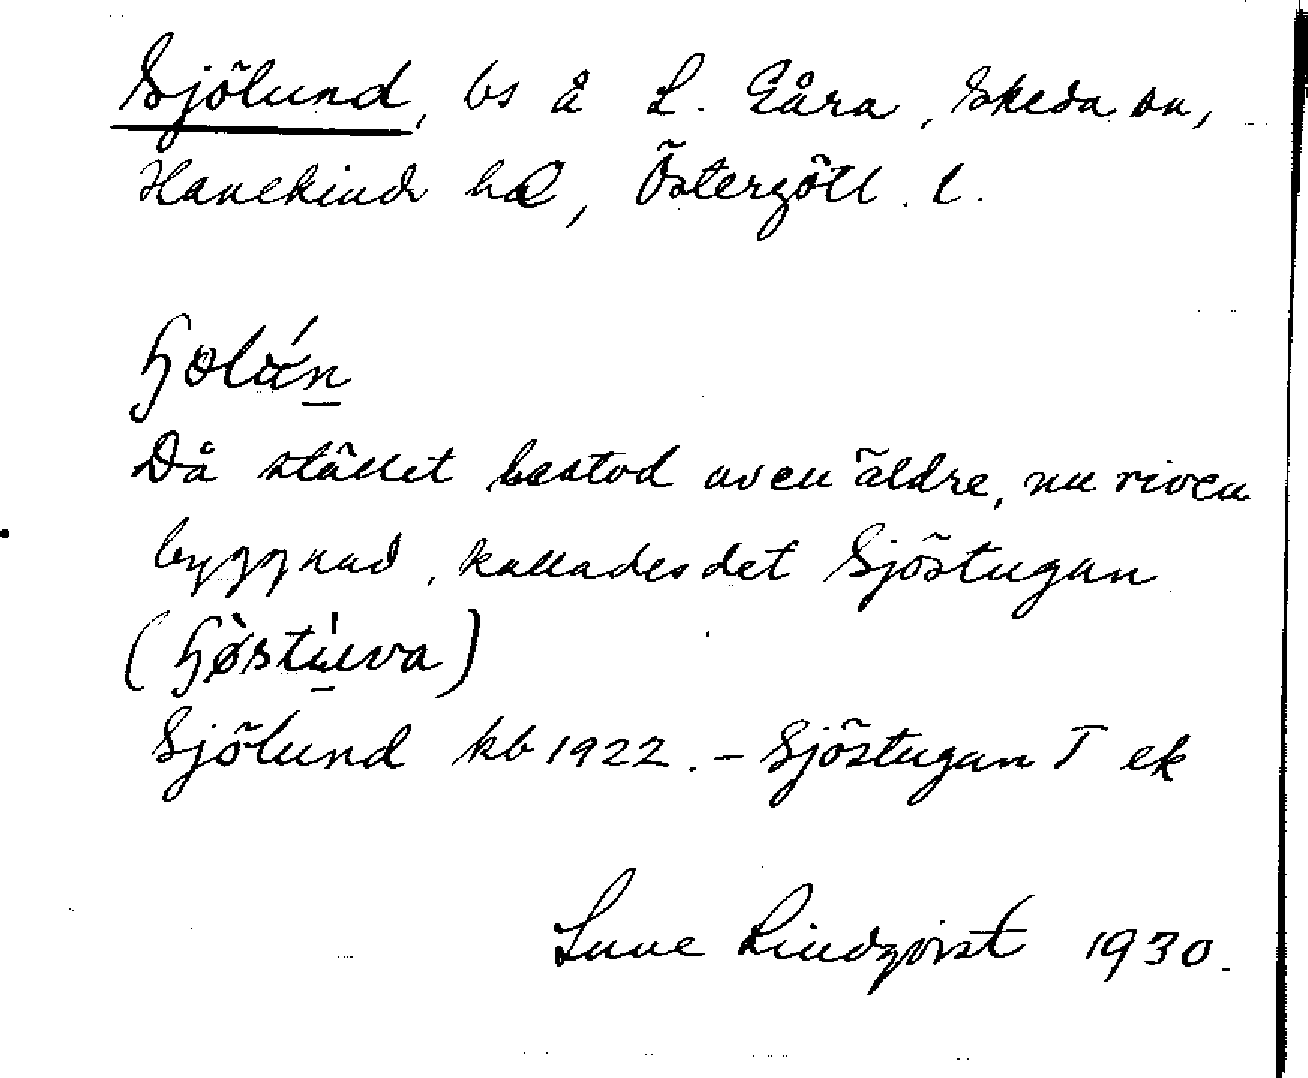 Sjölund, bs å L. Gåra, Skeda sn,
Hanekinds hd, Östergötl. l.
Då stället bestod av en äldre, nu riven
byggnad, kallades det Sjöstugan
Sjölund kb 1922. - Sjöstugan T ek
Sune Lindqvist 1930.